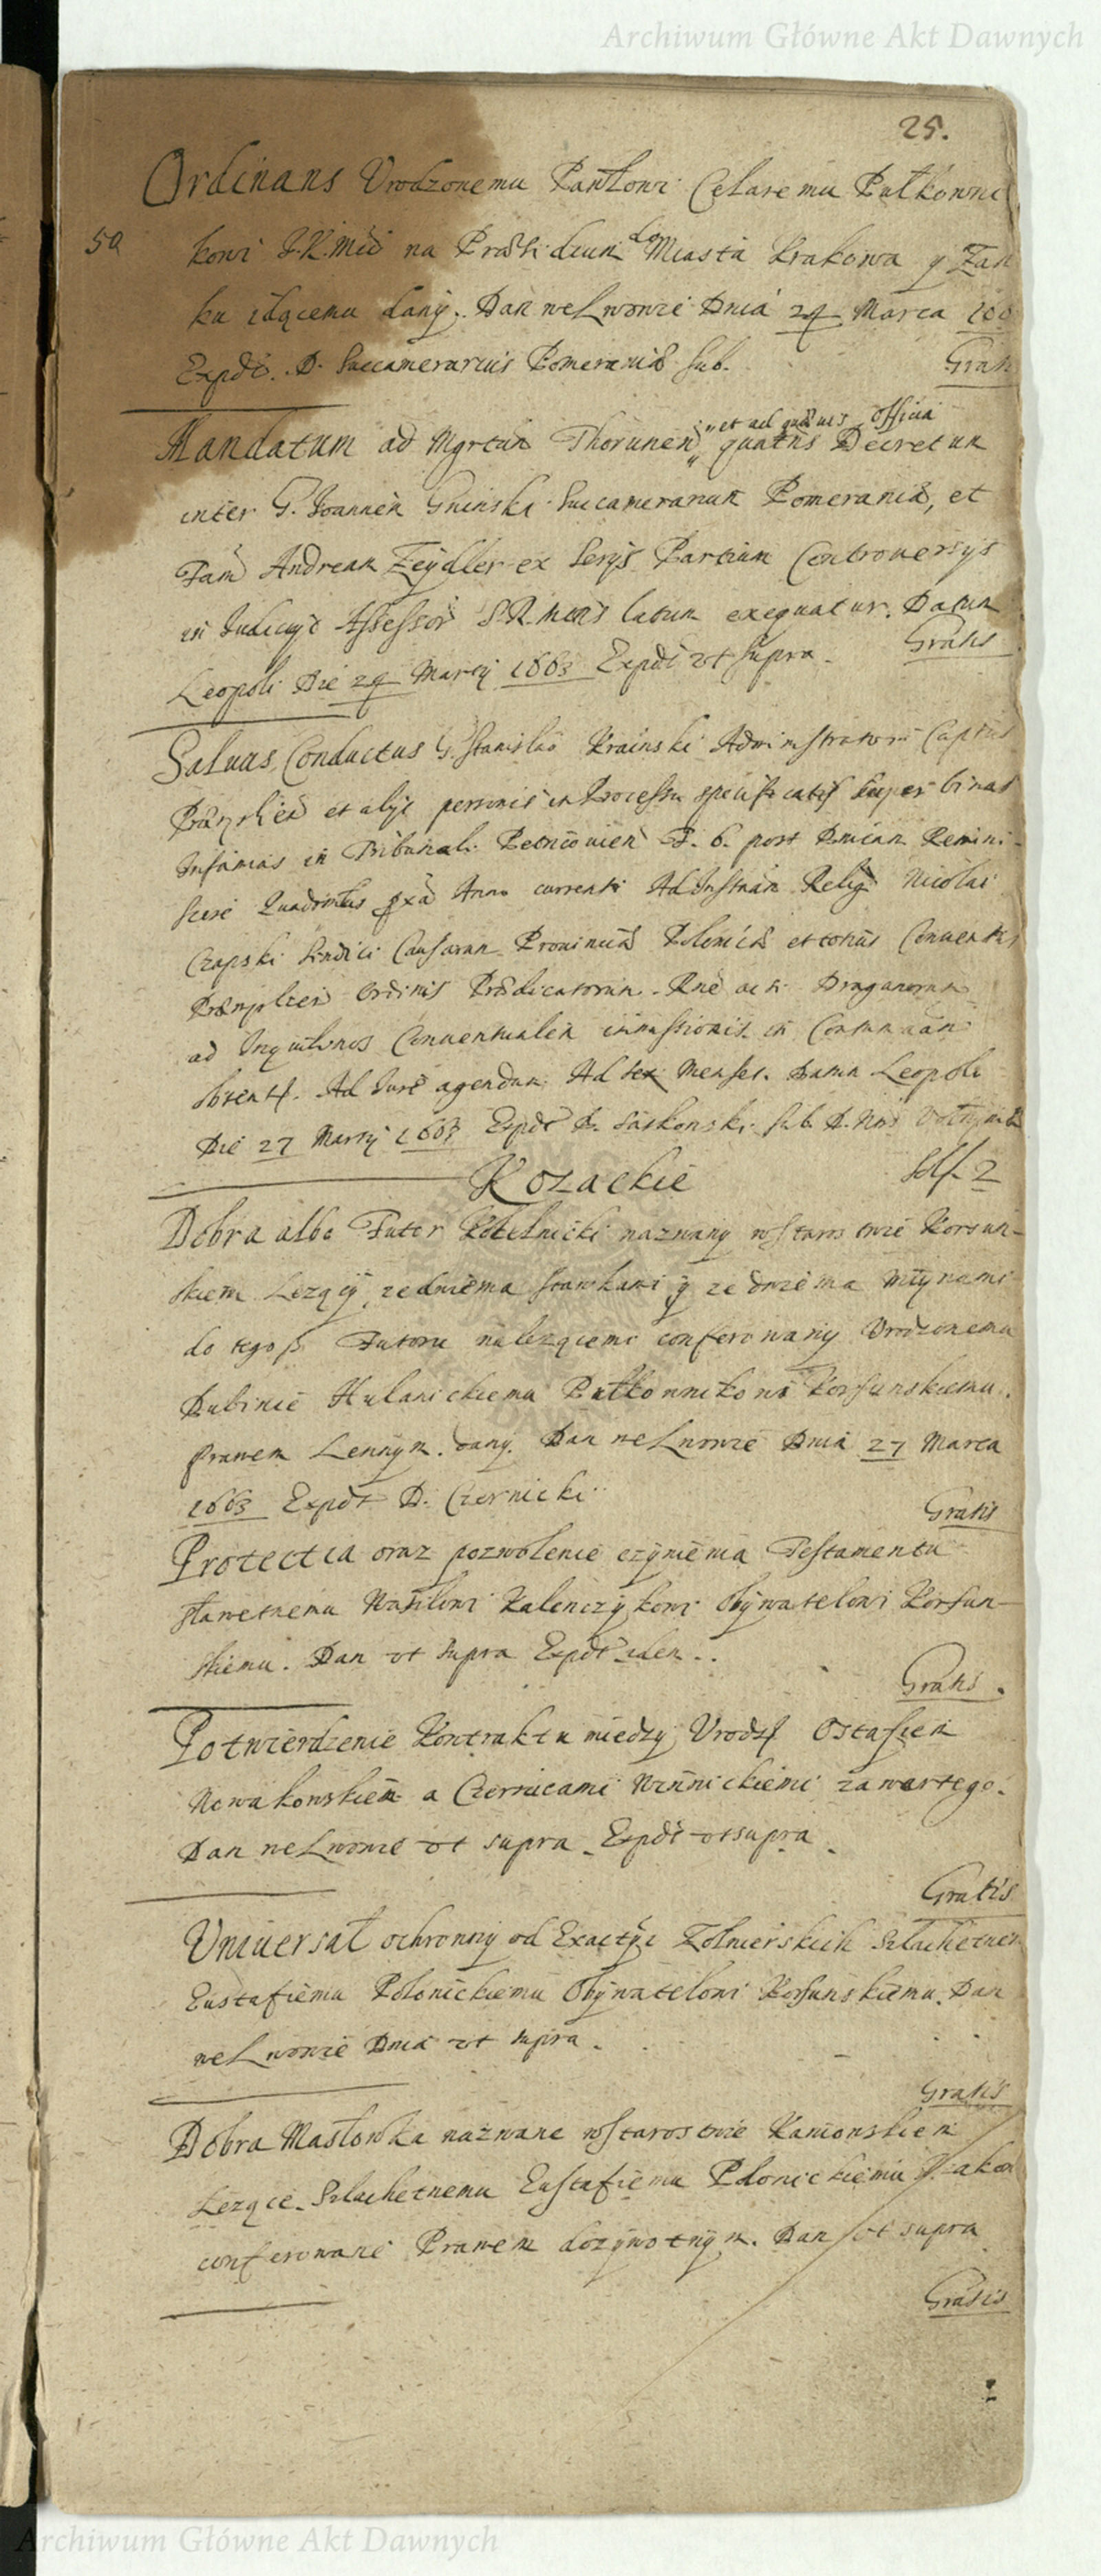 Archiwum Główne Akt Dawnych
25.
Ordinans Urodzonemu Pawłowi Celaremu Pułkowni
50 kowi J.K.Mći na Præsidium do Miasta Krakowa y Zam
ku idącemu dany. Dan we Lwowie Dnia 24 Marca 166
Expdt. D. Succamerarius Pomeraniæ sub.
Gratis
Mandatum ad Mgrtum Thorunen „et ad quævis officia
quatenus Decretum
inter G. Joannem Gninski Succamerarium Pomeraniæ, et
Fam Andream Zeydler ex Serijs Partium Controversijs
in Judicijs Assessor S.R.Mtis latum exequatur. Datum
Leopoli Die 24 Martij 1663 Expdt ut supra.
Gratis
Salvus Conductus G. Stanislao Krainski Administratori
et alijs personis in Processu specificatis super binas
Infamias in Tribunali Petricovien F. 6. post Dnicam Remini-
scere Anno currenti Ad Instnam Relig Nicolai
Czapski Sindici Causarum Provinciæ Poloniæ et totius Conventus
Ordinis Prædicatorum. Draganorum
ad Conventualem immissionis in
obtent. Ad Jure agendum. Ad sex Menses. Datum Leopoli
Die 27 Martij 1663 Expdt D.
Kozackie
Dobra albo Futor Kotelnicki nazwany w Starostwie Korsun-
skiem Lezący, ze dwiema stawkami y ze dwiema Młynami
do tegoß Futoru nalezącemi conferowany Urodzonemu
Dubinie Hulanickiemu Pułkownikowi Korsunskiemu.
Prawem Lennym. dany. Dan we Lwowie Dnia 27 Marca
1663 Expdt D. Czernicki
Gratis
Protectia oraz pozwolenie czynienia Testamentu
sławetnemu Wasilowi Kalenczykowi Obywatelowi Korsun-
skiemu. Dan ut supra Expdt idem..
Gratis.
Potwierdzenie Kontraktu miedzy Urodz Ostafiem
Nowakowskiem a Czernicami Winnickiemi zawartego.
Dan we Lwowie ut supra. Expdt ut supra.
Gratis
Uniuersał ochronny od Exactyi Zołnierskich Szlachetnem
Eustafiemu Polonickiemu Obywatelowi Korsunskiemu. Dan
we Lwowie Dnia ut supra.
Gratis
Dobra Masłowka nazwane w Starostwie Kaniowskiem
Lezące. Szlachetnemu Eustafiemu Polonickiemu
conferowane Prawem dozywotnym. Dan ut supra
Gratis
Archiwum Główne Akt Dawnych